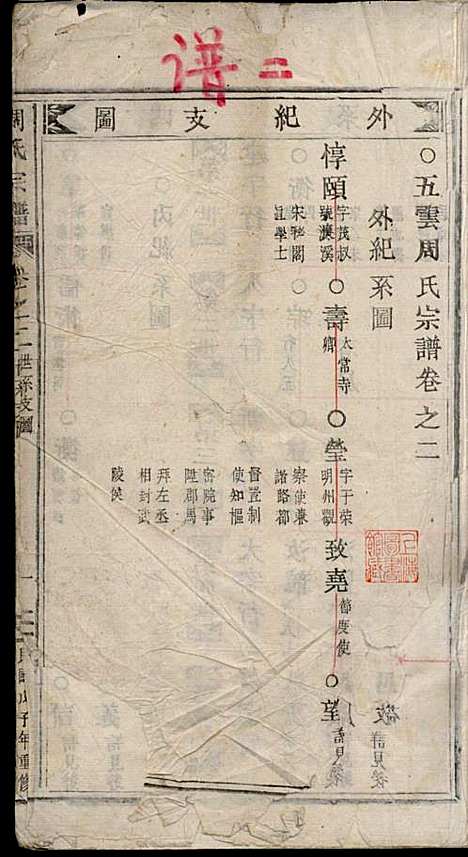 谱二
外紀支圖
○五雲周氏宗譜卷之二
外紀系圖
惇頤 字茂叔 號濂溪 宋秘閣 直學士 ○壽 太常寺 卿 ○瑩 字于榮 明州觀 察使兼 諸路都 督置制 使知樞 密院事 陞郡馬 拜左丞 相封武 陵侯 致堯 節度使 ○望
詳見後
周氏宗譜 卷之二 世系支圖
年重修